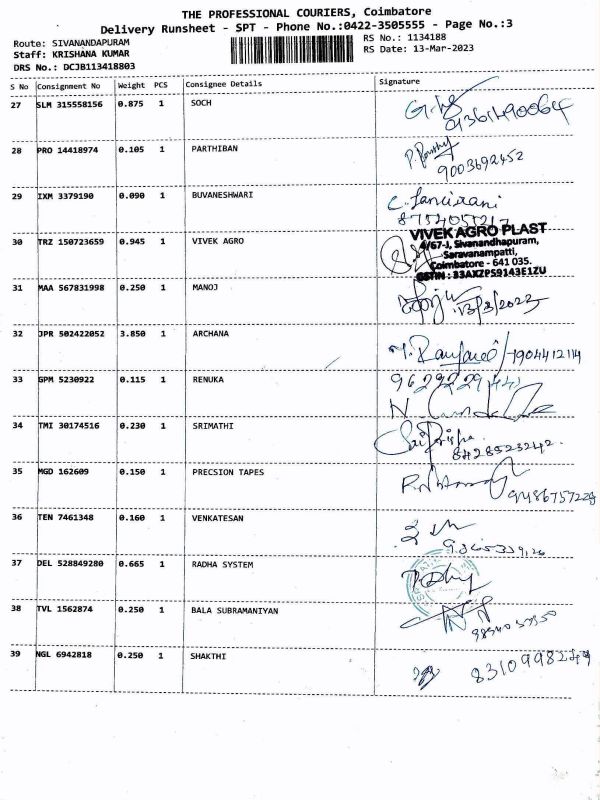 THE PROFESSIONAL COURIERS, Coimbatore
Delivery Runsheet - SPT - Phone No.:0422-3505555 - Page No.:3
Route: SIVANANDAPURAM RS No.: 1134188
Staff: KRISHANA KUMAR RS Date: 13-Mar-2023
DRS No.: DCJB113418803
S No Consignment No Weight PCS Consignee Details Signature
27 SLM 315558156 0.875 1 SOCH
28 PRO 14418974 0.105 1 PARTHIBAN
9003692452
29 IXM 3379190 0.090 1 BUVANESHWARI
30 TRZ 150723659 0.945 1 VIVEK AGRO
VIVEK AGRO PLAST
4/67-J, Sivanandhapuram,
Saravanampatti,
Coimbatore - 641 035.
GSTIN : 33AXZPS9143E1ZU
31 MAA 567831998 0.250 1 MANOJ
13/3/2023
32 JPR 502422052 3.850 1 ARCHANA
33 GPM 5230922 0.115 1 RENUKA
34 TMI 30174516 0.230 1 SRIMATHI
8428523242.
35 MGD 162609 0.150 1 PRECSION TAPES
9486757228
36 TEN 7461348 0.160 1 VENKATESAN
37 DEL 528849280 0.665 1 RADHA SYSTEM
38 TVL 1562874 0.250 1 BALA SUBRAMANIYAN
39 NGL 6942818 0.250 1 SHAKTHI